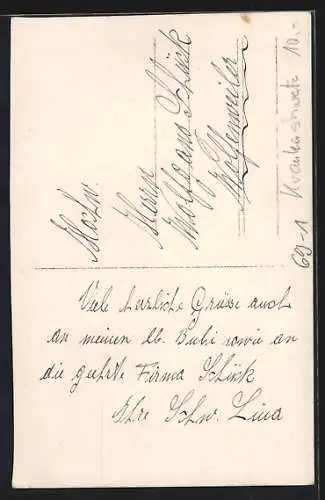 Hochw.
Herrn
Wolfgang Schück
Wolfenweiler
Viele herzliche Grüsse auch
an meinen lb. Bubi sowie an
die geehrte Firma Schück
Ihre Schw. Lina
69-1
Krankenschwester 10.-